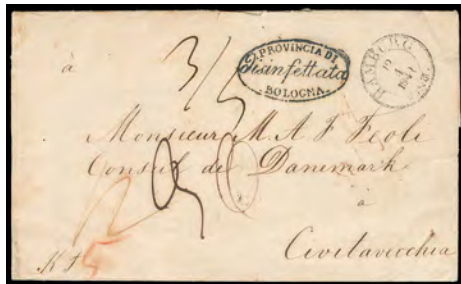 à
3/5
PROVINCIA DI
Disinfettata
BOLOGNA
HAMBURG
Monsieur M. A F Feoli
Consul de Danemark
à
Civitavecchia